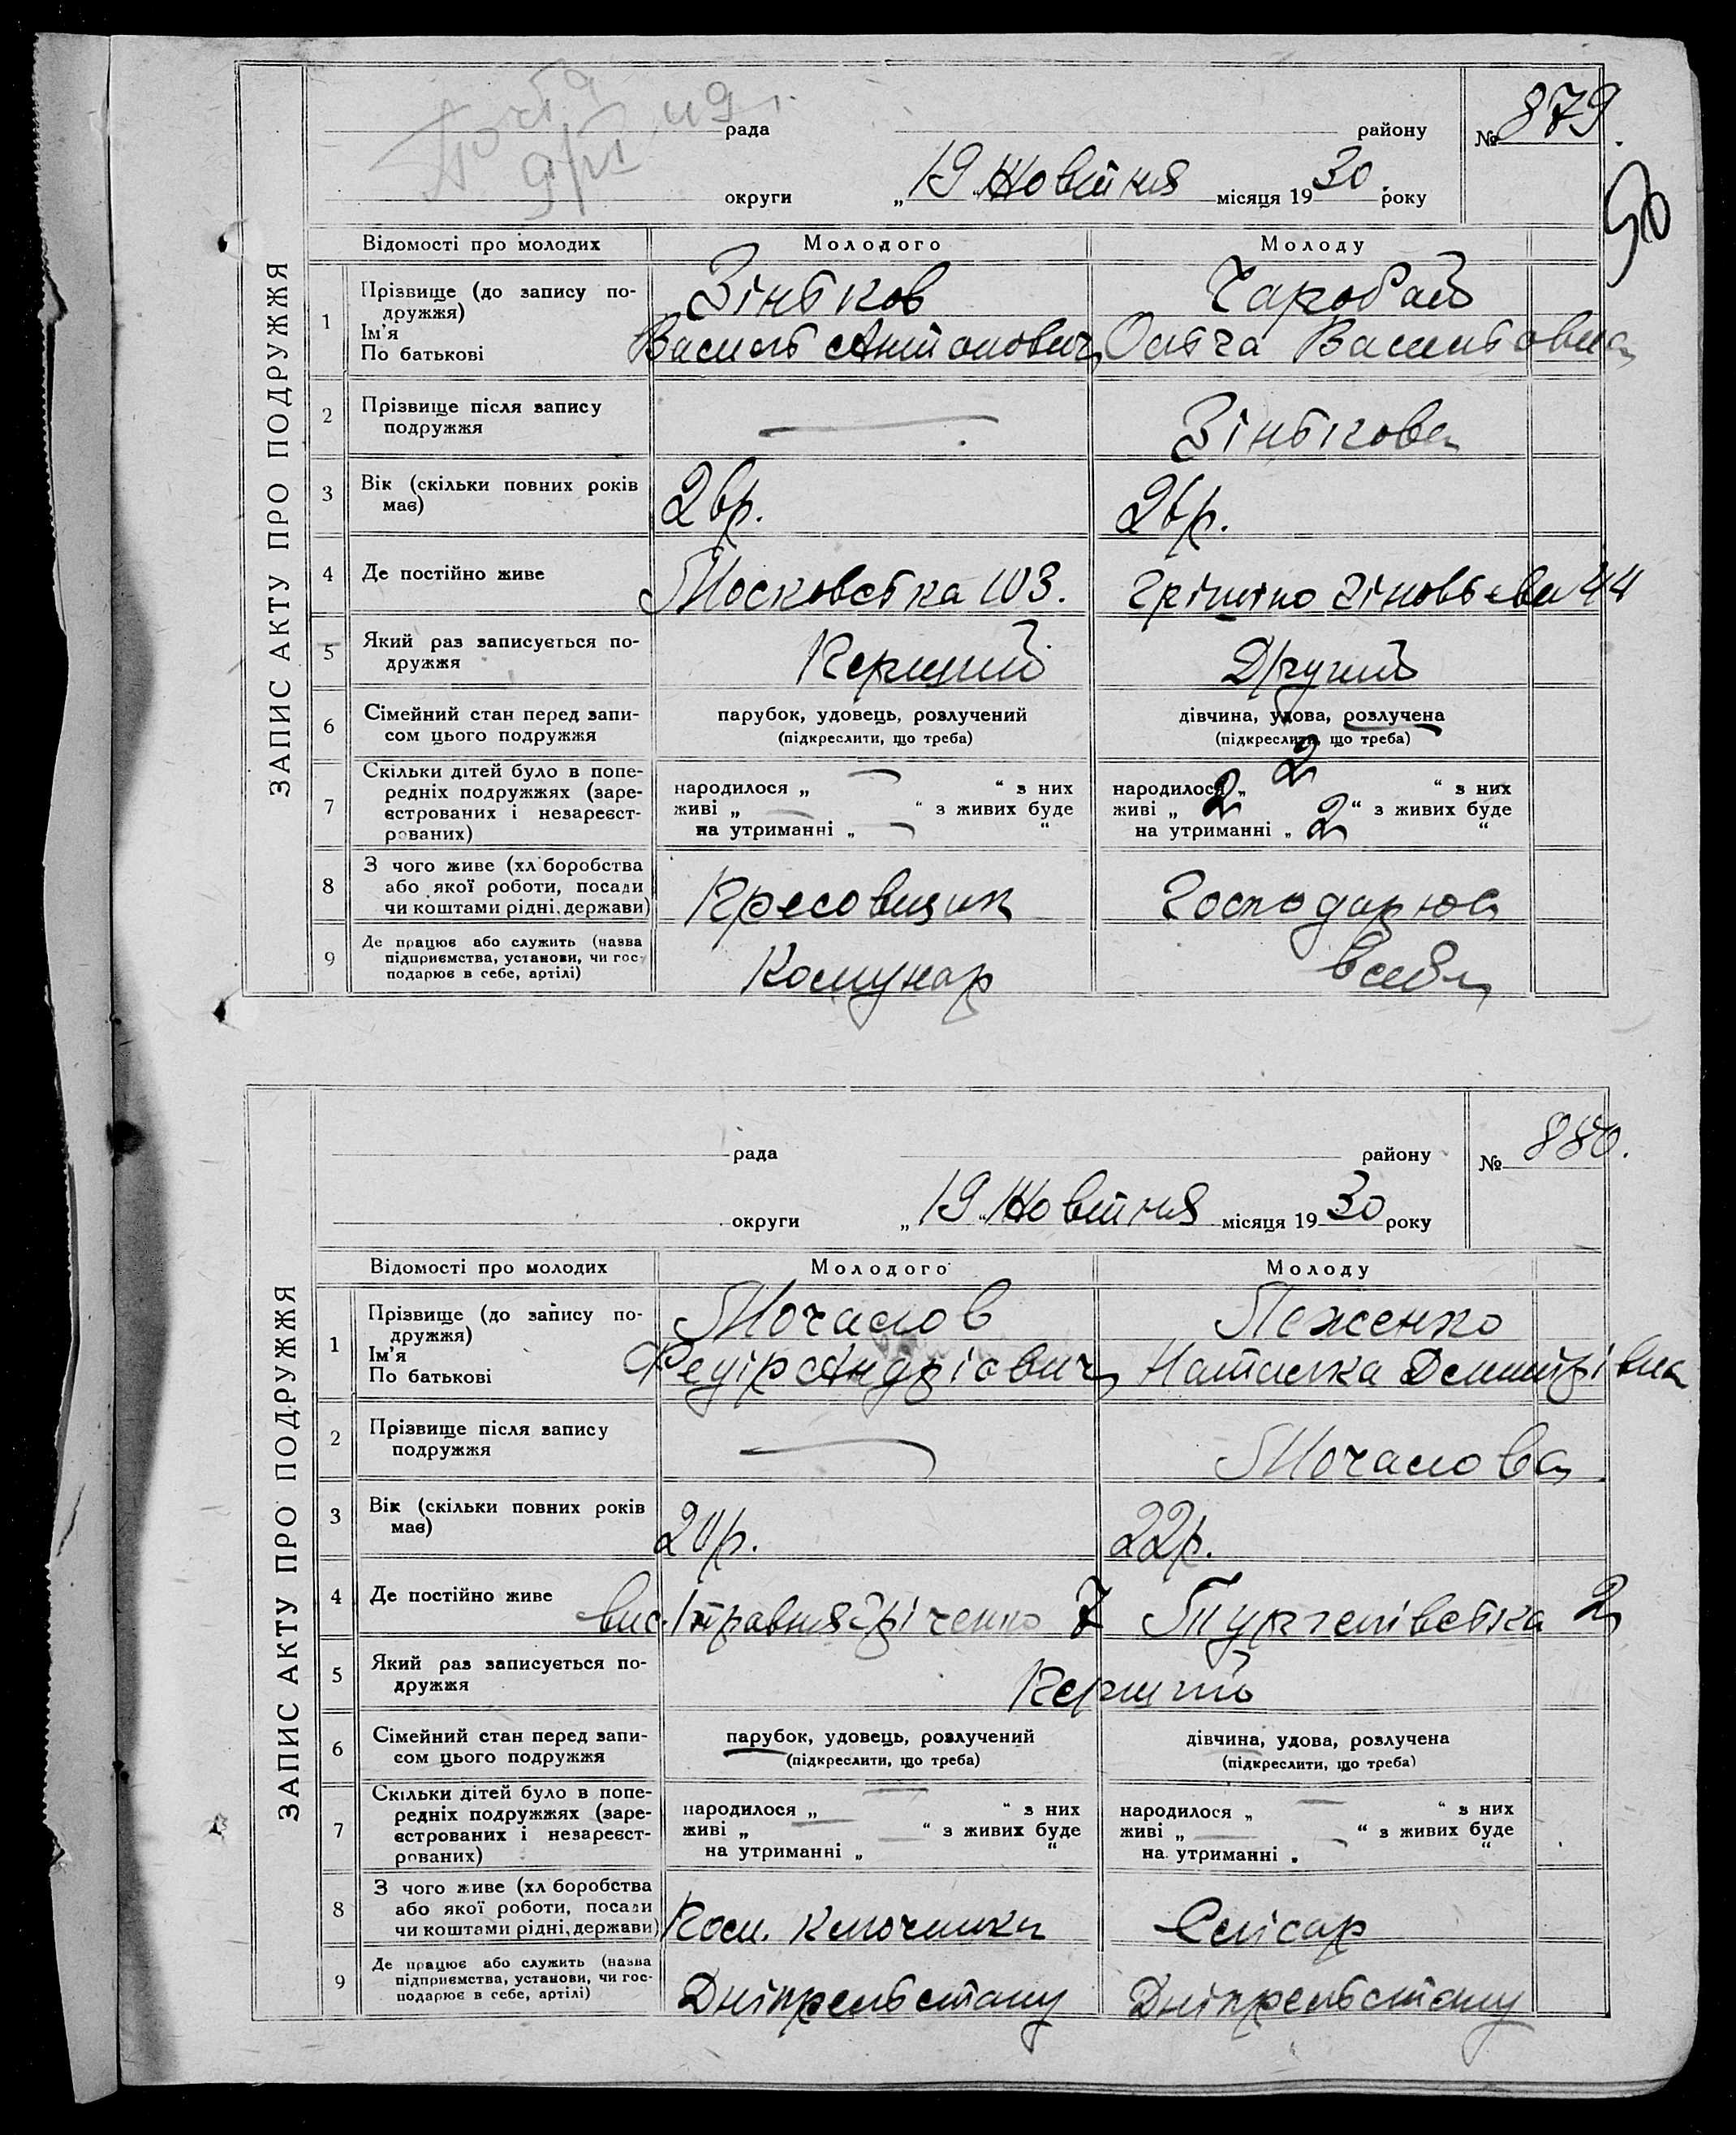 ЗАПИС АКТУ ПРО ПОДРУЖЖЯ
рада району № 879.
округи „19" Жовтня місяця 1930 року
50
Відомості про молодих Молодого Молоду
1 Прізвище (до запису по- Зіньков Чаробай
дружжя)
Ім'я
По батькові Василь Антонович Ольга Васильовна
2 Прізвище після запису — Зінькова
подружжя
3 Вік (скільки повних років 26р. 26р.
має)
4 Де постійно живе Московська 103. Грішіно Зіновьєва 44
5 Який раз записується по- Перший Другий
дружжя
6 Сімейний стан перед запи- парубок, удовець, розлучений дівчина, удова, розлучена
сом цього подружжя (підкреслити, що треба) (підкреслити, що треба)
7 Скільки дітей було в попе-
редніх подружжях (заре- народилося „ — " з них народилося „ 2 " з них
єстрованих і незареєст- живі „ — " з живих буде живі „ 2 " з живих буде
рованих) на утриманні „ — " на утриманні „ 2 "
8 З чого живе (хліборобства
або якої роботи, посади Пресовщик Господарює
чи коштами рідні, держави)
9 Де працює або служить (назва
підприємства, установи, чи гос- Комунар всебя
подарює в себе, артілі)
ЗАПИС АКТУ ПРО ПОДРУЖЖЯ
рада району № 880.
округи „19" Жовтня місяця 1930 року
Відомості про молодих Молодого Молоду
1 Прізвище (до запису по- Мочалов Леженко
дружжя)
Ім'я
По батькові Федір Андрієвич Наталка Демитрівна
2 Прізвище після запису — Мочалова
подружжя
3 Вік (скільки повних років 20р. 22р.
має)
4 Де постійно живе вис. 1 травня 7 Тургенівська 2
5 Який раз записується по- Перший
дружжя
6 Сімейний стан перед запи- парубок, удовець, розлучений дівчина, удова, розлучена
сом цього подружжя (підкреслити, що треба) (підкреслити, що треба)
7 Скільки дітей було в попе-
редніх подружжях (заре- народилося „ — " з них народилося „ — " з них
єстрованих і незареєст- живі „ — " з живих буде живі „ — " з живих буде
рованих) на утриманні „ — " на утриманні „ — "
8 З чого живе (хліборобства
або якої роботи, посади Слісар
чи коштами рідні, держави)
9 Де працює або служить (назва
підприємства, установи, чи гос- Дніпрельстану Дніпрельстану
подарює в себе, артілі)